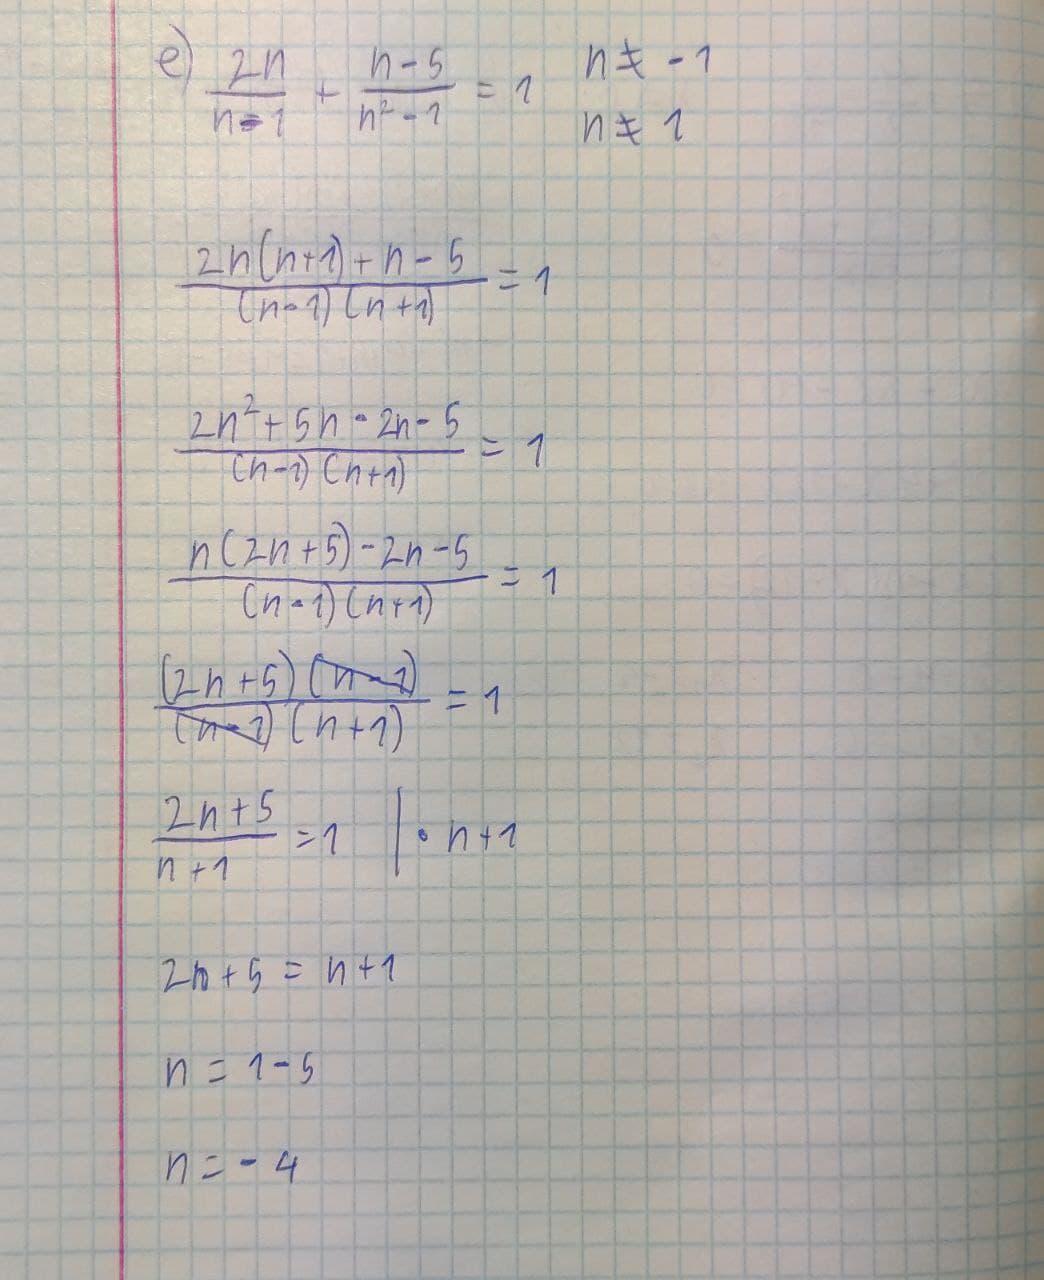 e) 2n/(n-1) + (n-5)/(n²-1) = 1   n ≠ -1
n ≠ 1
(2n(n+1)+n-5)/((n-1)(n+1)) = 1
(2n²+5n-2n-5)/((n-1)(n+1)) = 1
(n(2n+5)-2n-5)/((n-1)(n+1)) = 1
((2n+5)(n-1))/((n-1)(n+1)) = 1
(2n+5)/(n+1) = 1   | · n+1
2n+5 = n+1
n = 1-5
n = -4